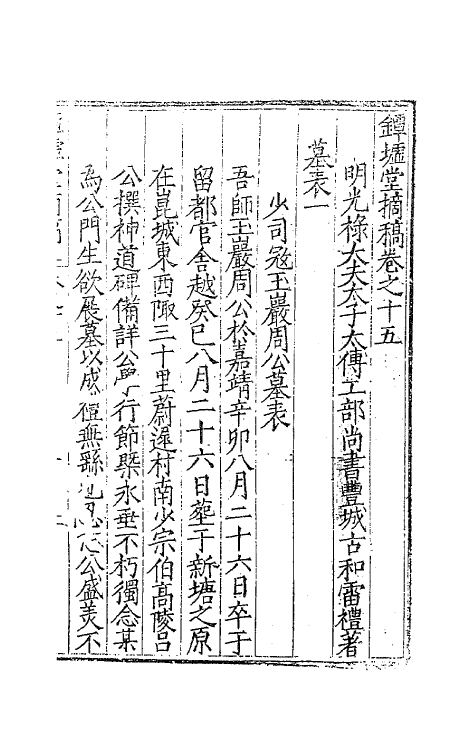 鐔墟堂摘稿卷之十五
明光祿大夫太子太傅工部尚書豐城古和雷禮著
墓表一
少司寇玉巖周公墓表
吾師玉巖周公於嘉靖辛卯八月二十六日卒于
留都官舍越癸巳八月二十六日葬于新塘之原
在崑城東西陬三十里蔚遲村南少宗伯高陵呂
公撰神道碑備詳公學行節槩永垂不朽獨念某
為公門生欲展墓以成禮無繇公盛美不